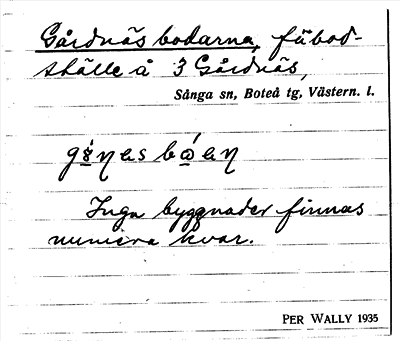 Gårdnäs bodarna, fäbod-
ställe å 3 Gårdnäs,
Sånga sn, Boteå tg, Västern. l.
Inga byggnader finnas
numera kvar.
PER WALLY 1935